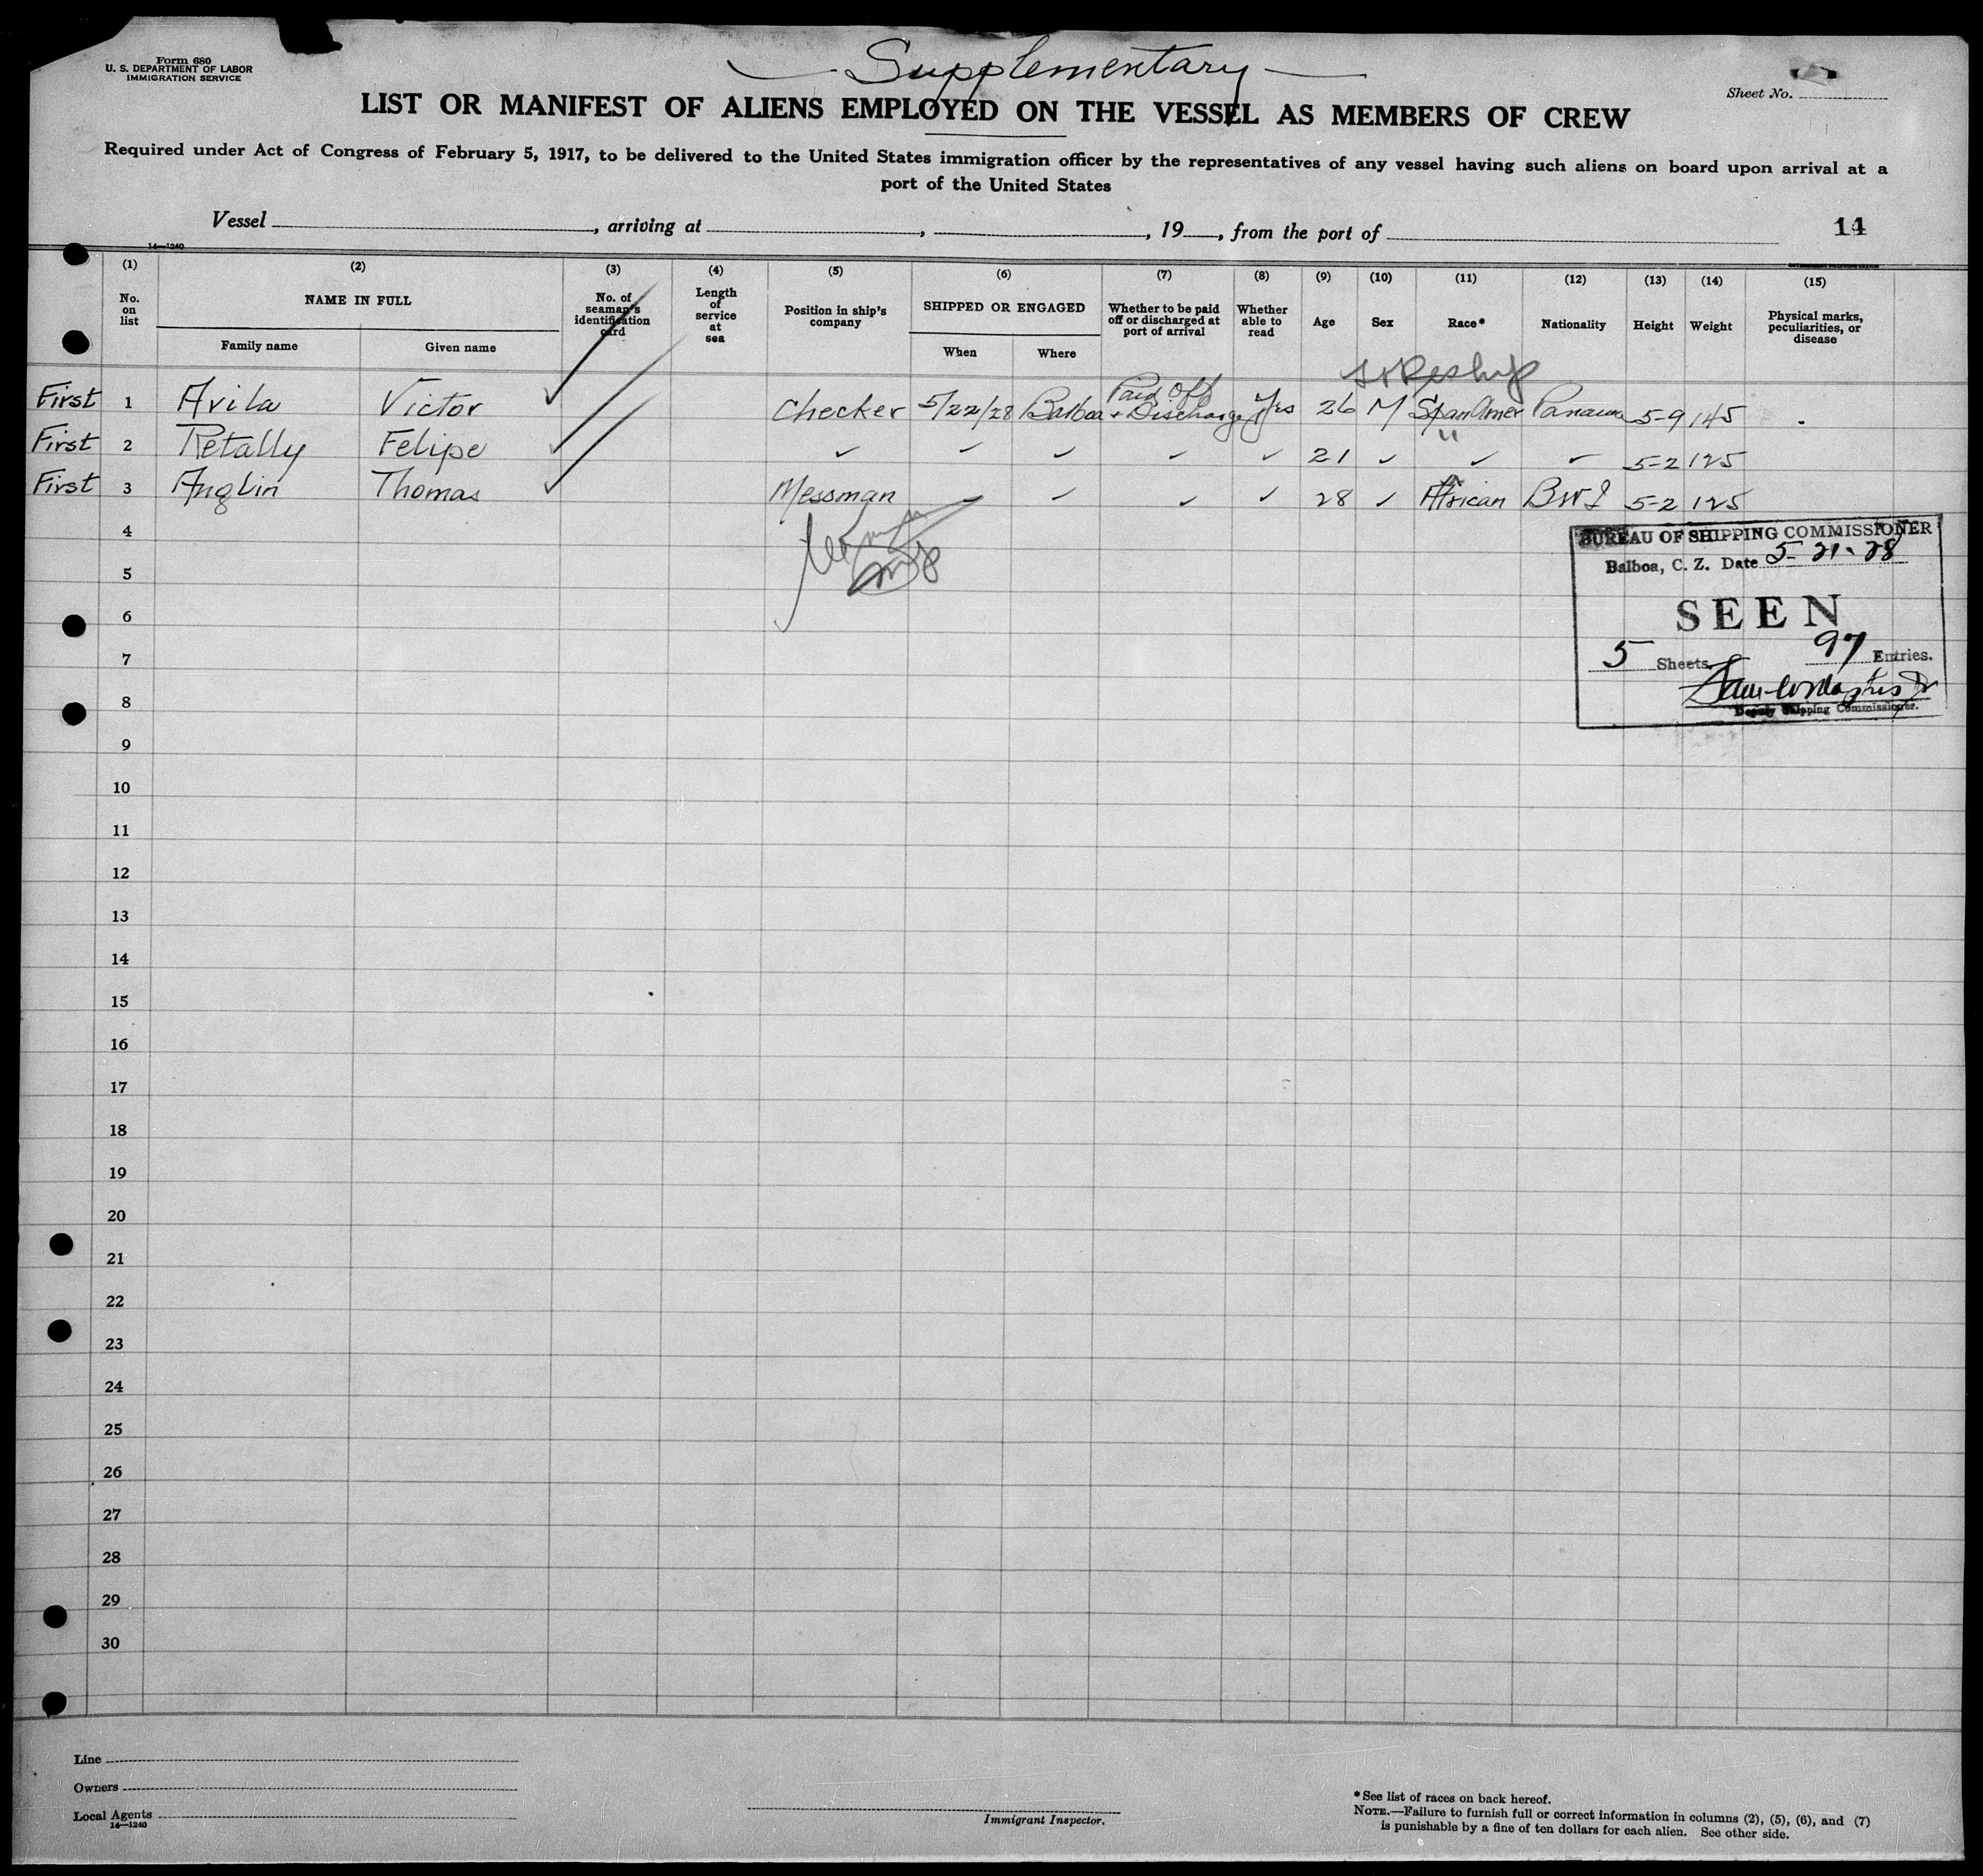 Form 680
U. S. DEPARTMENT OF LABOR
IMMIGRATION SERVICE
Supplementary
Sheet No.
LIST OR MANIFEST OF ALIENS EMPLOYED ON THE VESSEL AS MEMBERS OF CREW
Required under Act of Congress of February 5, 1917, to be delivered to the United States immigration officer by the representatives of any vessel having such aliens on board upon arrival at a
port of the United States
Vessel , arriving at , , 19 , from the port of 14
14—1240
(1) (2) (3) (4) (5) (6) (7) (8) (9) (10) (11) (12) (13) (14) (15)
No. on list NAME IN FULL No. of seaman's identification card Length of service at sea Position in ship's company SHIPPED OR ENGAGED Whether to be paid off or discharged at port of arrival Whether able to read Age Sex Race* Nationality Height Weight Physical marks, peculiarities, or disease
Family name Given name When Where
First 1 Avila Victor ✓ Checker 5/22/28 Balboa Paid Off + Discharge Yes 26 M Span Amer Panama 5-9 145
First 2 Retally Felipe ✓ ✓ ✓ ✓ ✓ ✓ 21 ✓ " ✓ ✓ 5-2 125
First 3 Anglin Thomas ✓ Messman ✓ ✓ ✓ ✓ 28 ✓ African BWI 5-2 125
4
BUREAU OF SHIPPING COMMISSIONER
Balboa, C. Z. Date 5-21-28
5
SEEN
6
5 Sheets 97 Entries.
7
Deputy Shipping Commissioner.
8
9
10
11
12
13
14
15
16
17
18
19
20
21
22
23
24
25
26
27
28
29
30
Line
Owners
Local Agents
14—1240
Immigrant Inspector.
*See list of races on back hereof.
NOTE.—Failure to furnish full or correct information in columns (2), (5), (6), and (7)
is punishable by a fine of ten dollars for each alien. See other side.